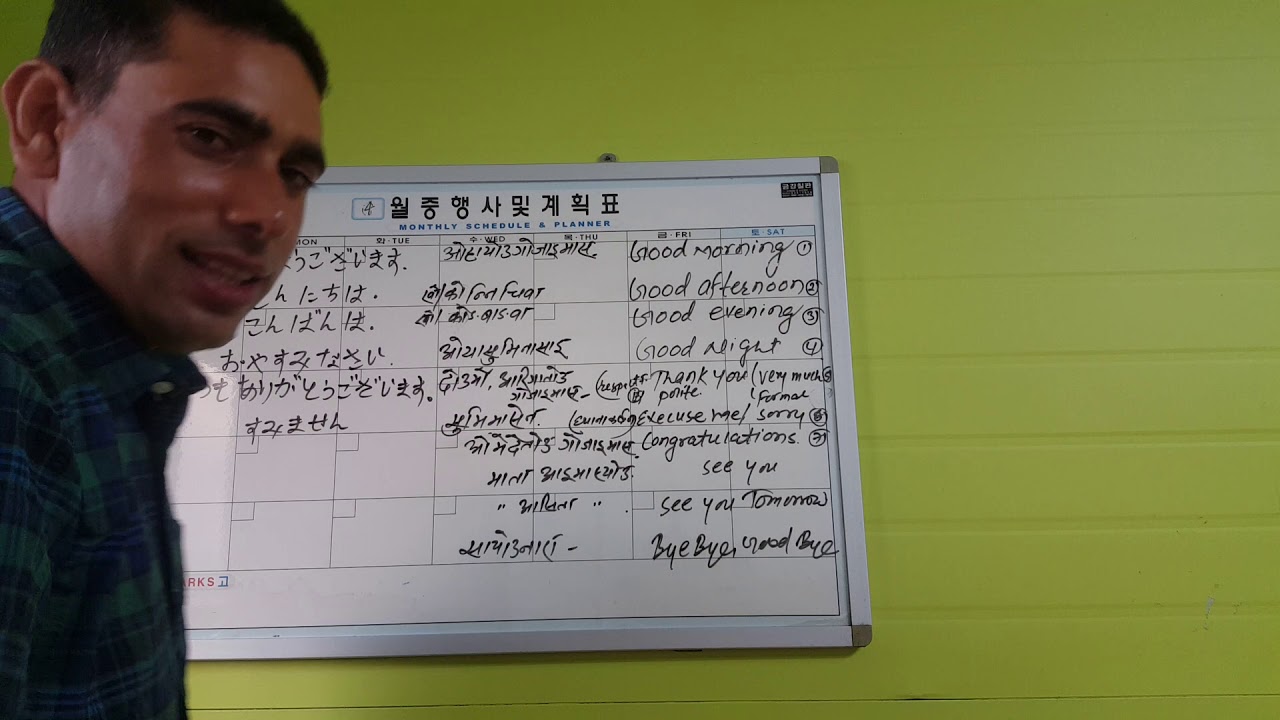 4 월중행사및계획표
MONTHLY SCHEDULE & PLANNER
MON 화·TUE 수·WED 목·THU 금·FRI 토·SAT
うございます. ओहायोउ गोजाइमास. Good morning ①
んにちは. कोन्निचिवा Good afternoon ②
こんばんは. Good evening ③
おやすみなさい. ओयासुमिनासाई Good Night ④
ありがとうございます. दोउमो, आरिगातोउ Thank you (very much
गोजाइमास- polite. Formal
すみません सुमिमासेन. Execuse me/ sorry
ओमेदेतोउ गोजाइमास. Congratulations.
माता आइमास्योउ. See you
" आसिता " . See you Tomorrow
सायोउनारा - Bye Bye, Good Bye
ARKS 고